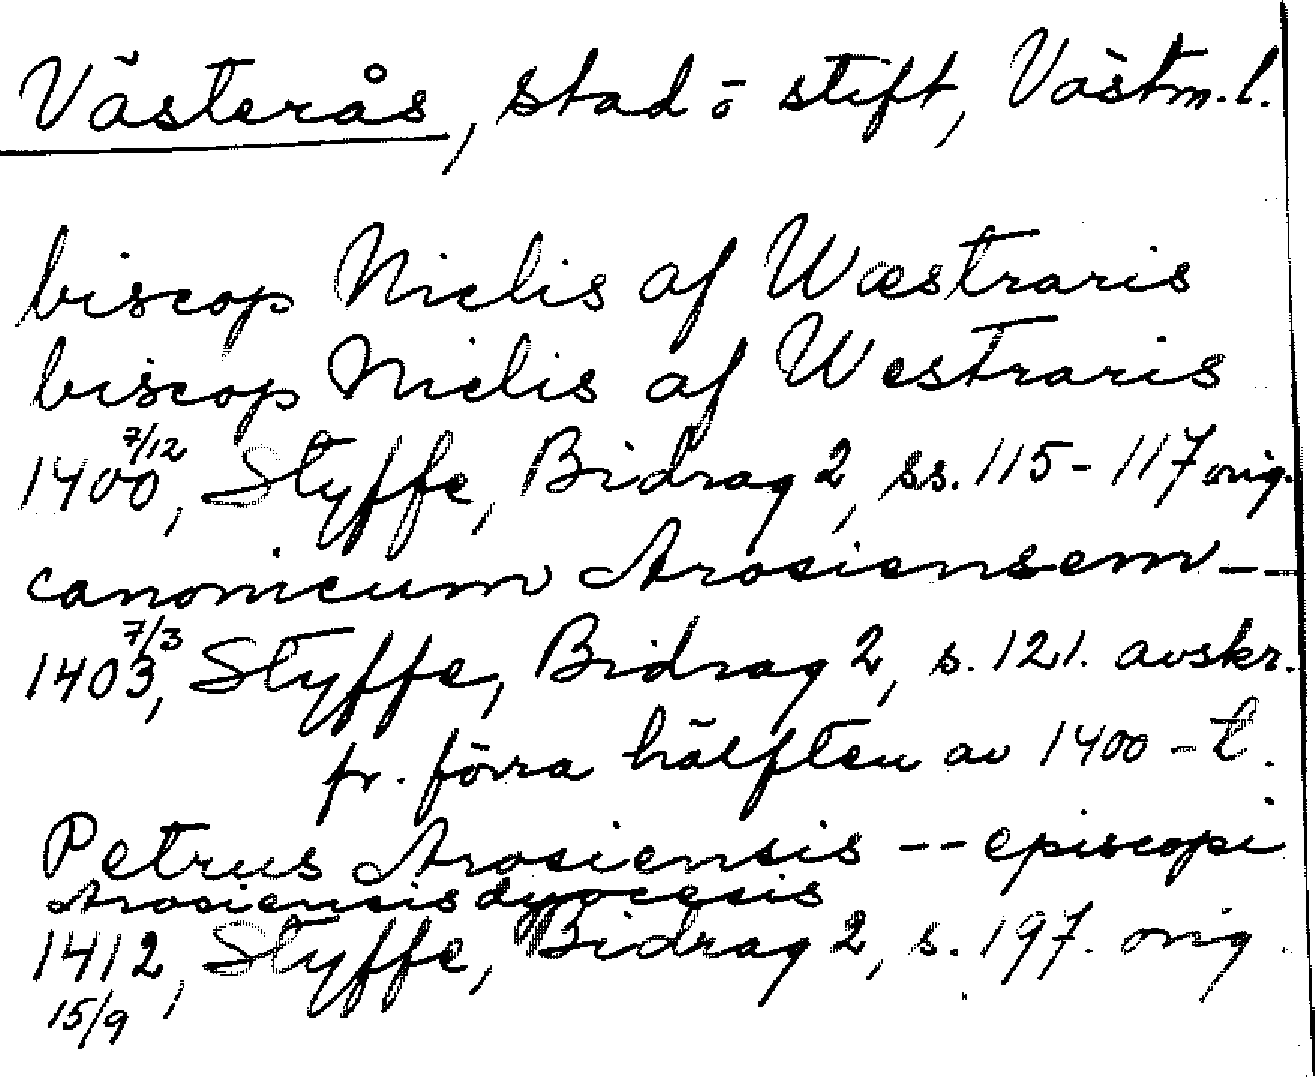 Västerås, stad o stift, Västm. l.
biscop Nielis af Wæstraris
biscop Nielis af Westraris
7/12
1400, Styffe, Bidrag 2, ss. 115-117 orig.
canonicum Arosiensem --
7/3
1403, Styffe, Bidrag 2, s. 121. avskr.
fr. förra hälften av 1400-t.
Petrus Arosiensis -- episcopi
Arosiensis dyocesis
1412, Styffe, Bidrag 2, s. 197. orig.
15/9